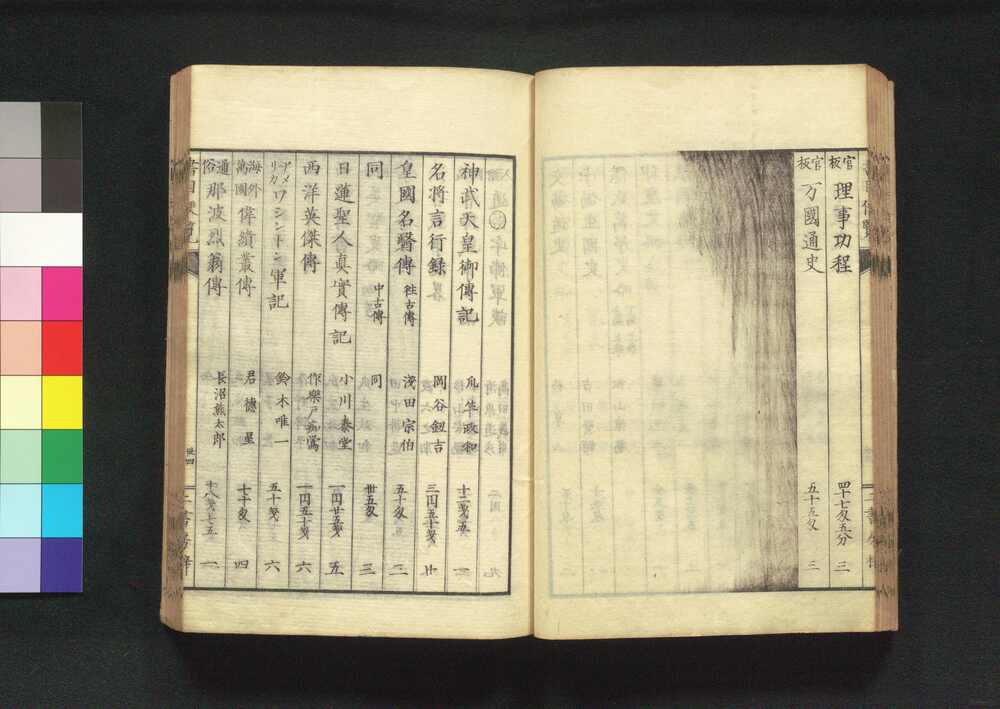 官板 理事功程 四十七匁五分 三
官板 万國通史 五十五匁 三
神武天皇御傳記 政和 十二匁五 二
名将言行録 岡谷釼吉 三円五十匁 廿
皇國名醫傳 徃古傳 浅田宗伯 五十匁 二
同 中古傳 同 卅五匁 三
日蓮聖人真實傳記 小川泰堂 一円廿五匁 五
西洋英傑傳 作樂戸痴鶯 一円五十匁 六
アメリカ ワシントン軍記 鈴木唯一 五十匁 六
海外萬國 偉績叢傳 君德星 七十匁 四
通俗 那波烈翁傳 長沼熊太郎 十八匁七五 一